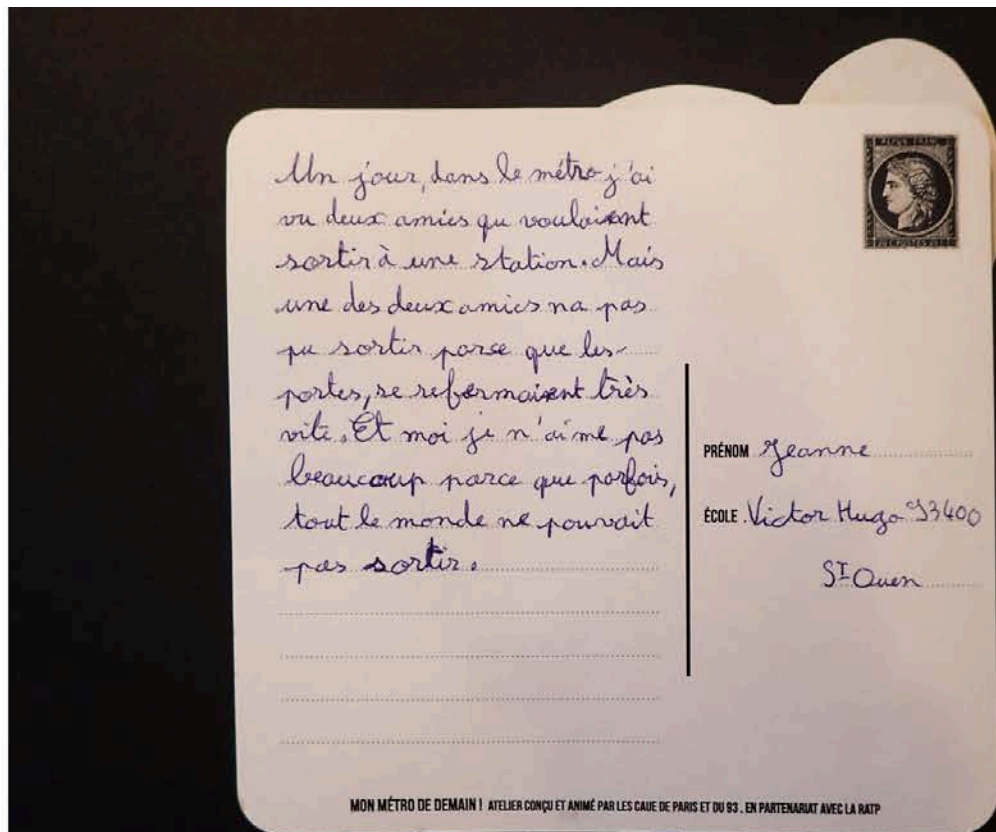 Un jour, dans le métro j'ai
vu deux amies qu voulaient
sortir à une station. Mais
une des deux amies na pas
pu sortir parce que les
portes, se refermaient très
vite. Et moi je n'aime pas
beaucoup parce que parfois,
tout le monde ne pouvait
pas sortir.
REPUB. FRANC.
20 C POSTES 20 C
PRÉNOM Jeanne
ÉCOLE. Victor Hugo 93400
ST Ouen
MON MÉTRO DE DEMAIN ! ATELIER CONÇU ET ANIMÉ PAR LES CAUE DE PARIS ET DU 93. EN PARTENARIAT AVEC LA RATP